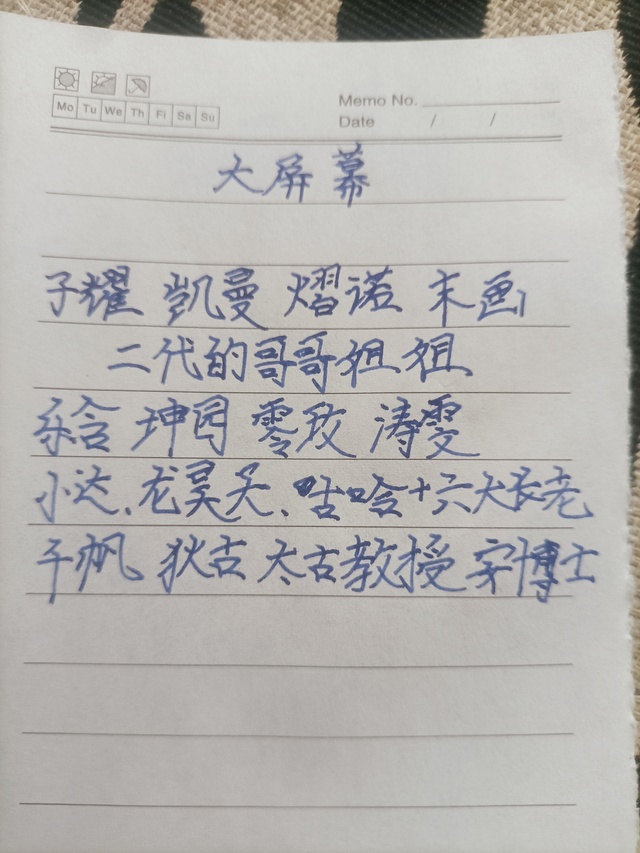 Mo Tu We Th Fi Sa Su
Memo No.
Date / /
大屏幕
子耀 凯曼 熠诺 末画
二代的哥哥姐姐
乐含 珅园 零玫 涛雯
小达、龙昊天、咕哈十六大长老
千帆 狄古 太古教授 宋博士